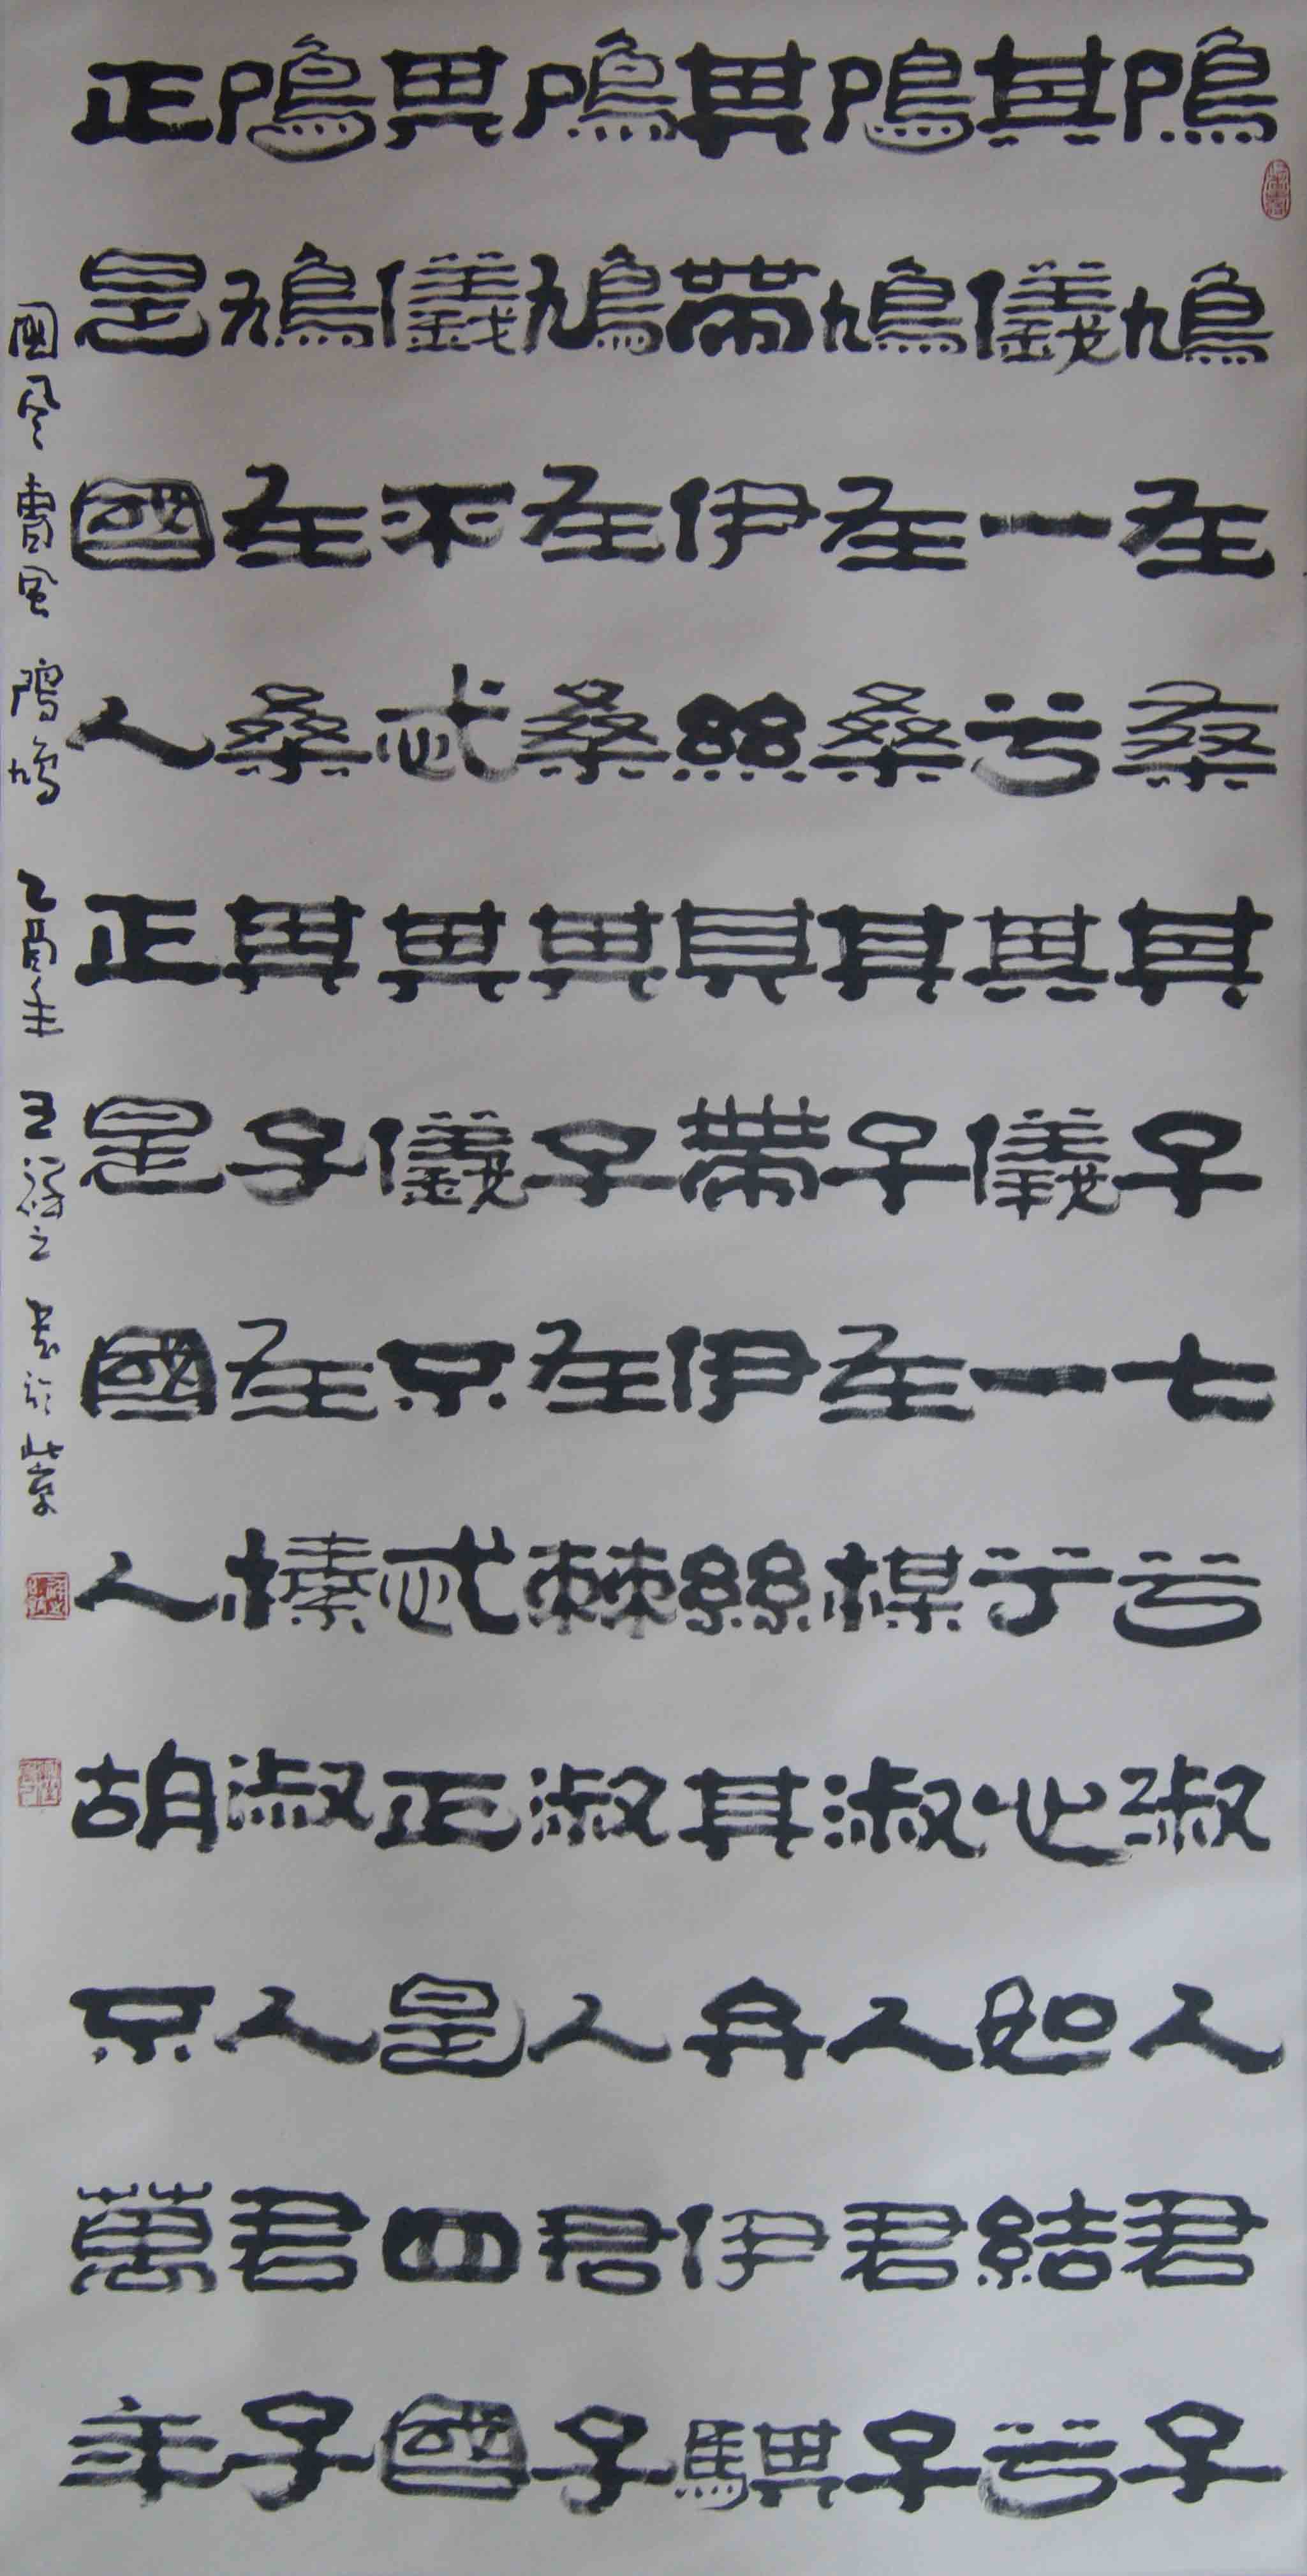 鳲鳩在桑其子七兮淑人君子
其儀一兮其儀一兮心如結兮
鳲鳩在桑其子在梅淑人君子
其帶伊絲其帶伊絲其弁伊騏
鳲鳩在桑其子在棘淑人君子
其儀不忒其儀不忒正是四國
鳲鳩在桑其子在榛淑人君子
正是國人正是國人胡不萬年
國風曹風鳲鳩乙酉年王
之書於北京